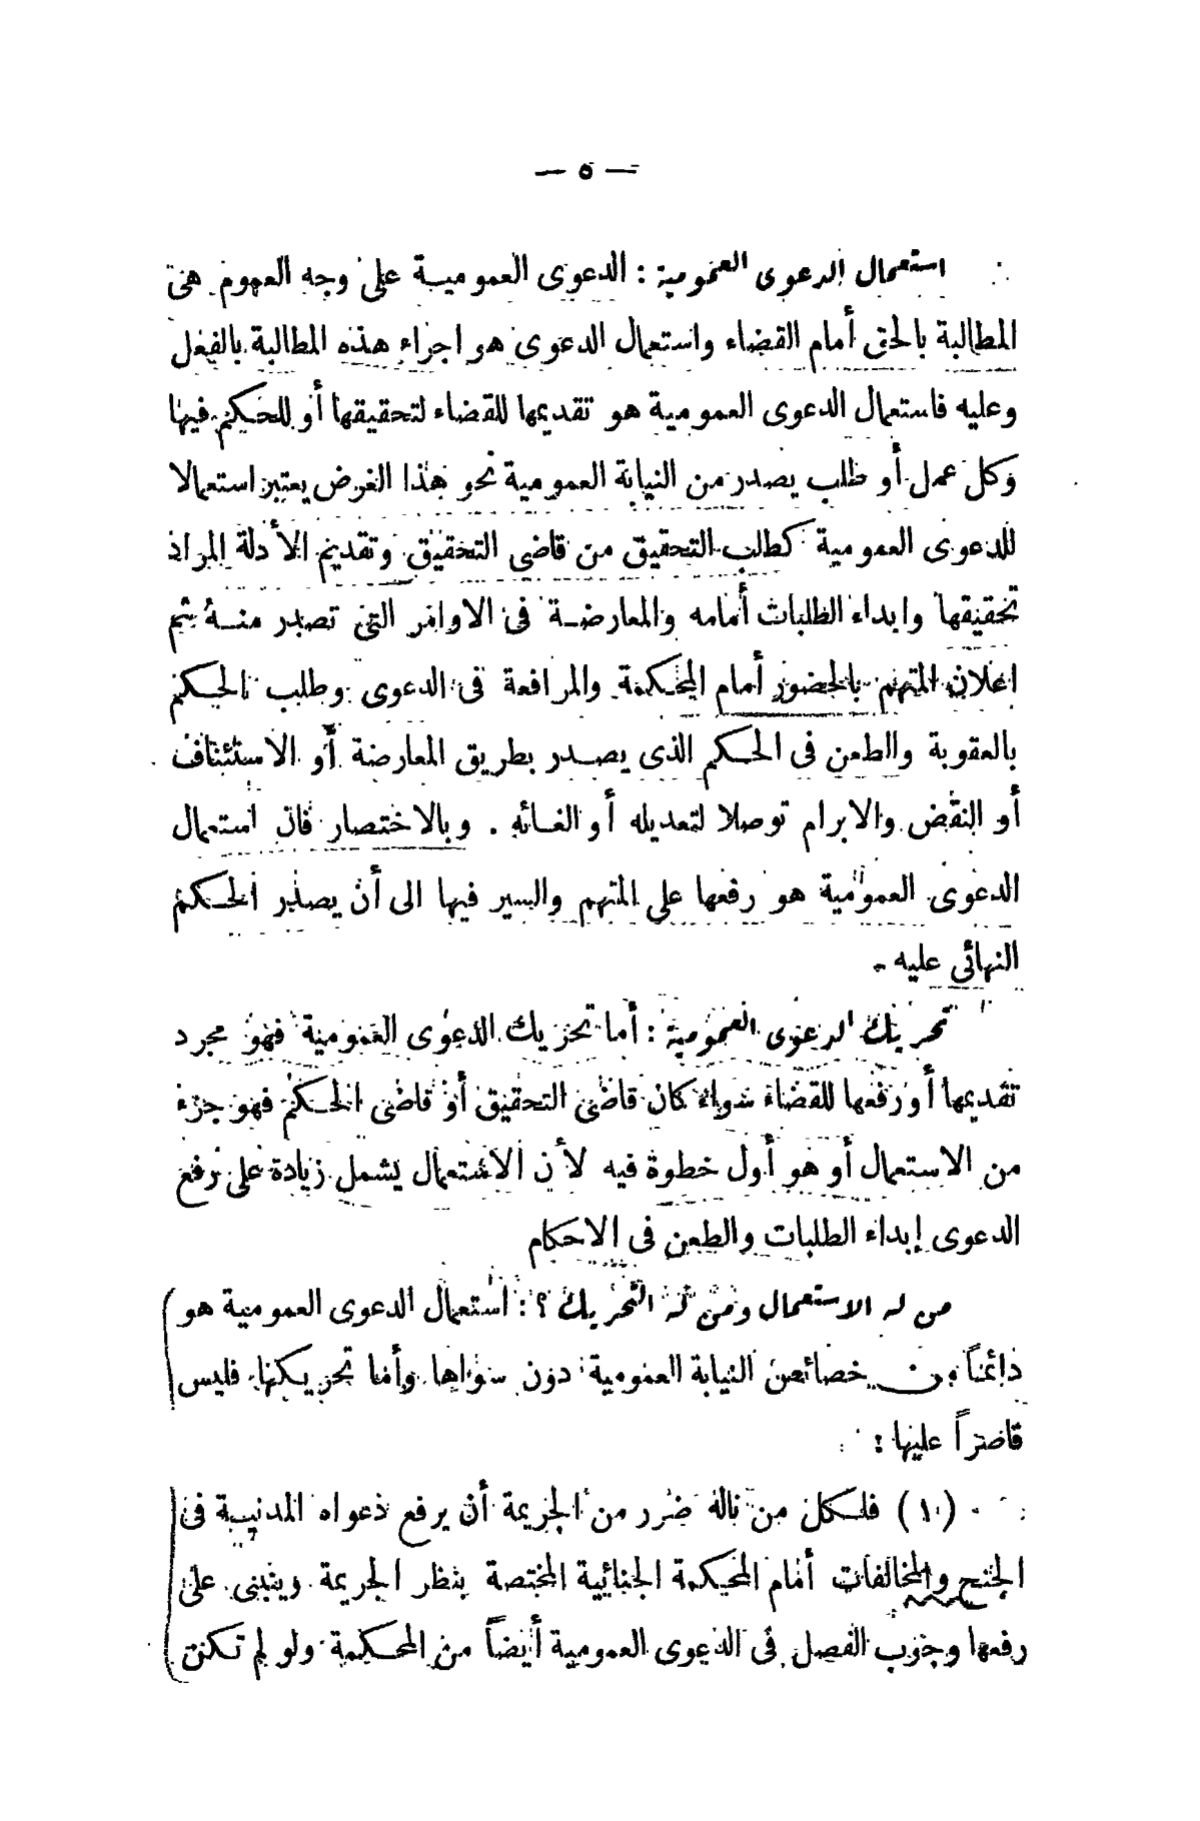 — ٥ —
استعمال الدعوى العمومية : الدعوى العمومية على وجه العموم هى
المطالبة بالحق أمام القضاء واستعمال الدعوى هو اجراء هذه المطالبة بالفعل
وعليه فاستعمال الدعوى العمومية هو تقديمها للقضاء لتحقيقها أو للحكم فيها
وكل عمل أو طلب يصدر من النيابة العمومية نحو هذا الغرض يعتبر استعمالا
للدعوى العمومية كطلب التحقيق من قاضى التحقيق وتقديم الأدلة المراد
تحقيقها وابداء الطلبات أمامه والمعارضة فى الاوامر التى تصدر منه ثم
اعلان المتهم بالحضور أمام المحكمة والمرافعة فى الدعوى وطلب الحكم
بالعقوبة والطعن فى الحكم الذى يصدر بطريق المعارضة أو الاستئناف
أو النقض والابرام توصلا لتعديله أو الغائه . وبالاختصار فان استعمال
الدعوى العمومية هو رفعها على المتهم والسير فيها الى أن يصدر الحكم
النهائى عليه -
تحريك الدعوى العمومية : أما تحريك الدعوى العمومية فهو مجرد
تقديمها أو رفعها للقضاء سواء كان قاضى التحقيق أو قاضى الحكم فهو جزء
من الاستعمال أو هو أول خطوة فيه لأن الاستعمال يشمل زيادة على رفع
الدعوى إبداء الطلبات والطعن فى الاحكام
من له الاستعمال ومن له التحريك ؟ : استعمال الدعوى العمومية هو
دائماً من خصائص النيابة العمومية دون سواها وأما تحريكها فليس
قاصراً عليها :
(١) فلكل من ناله ضرر من الجريمة أن يرفع دعواه المدنية فى
الجنح والمخالفات أمام المحكمة الجنائية المختصة بنظر الجريمة وينبنى على
رفعها وجوب الفصل فى الدعوى العمومية أيضاً من المحكمة ولو لم تكن